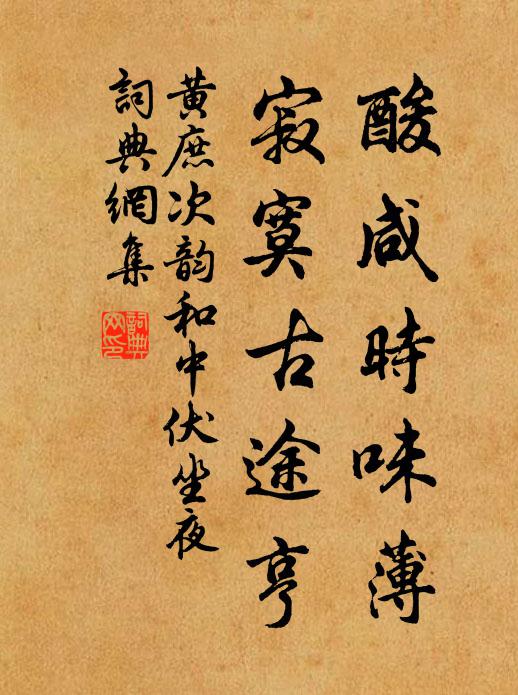 酸咸時味薄
寂寞古途亨
黃庶次韵和中伏坐夜
詞典網集
詞典网印